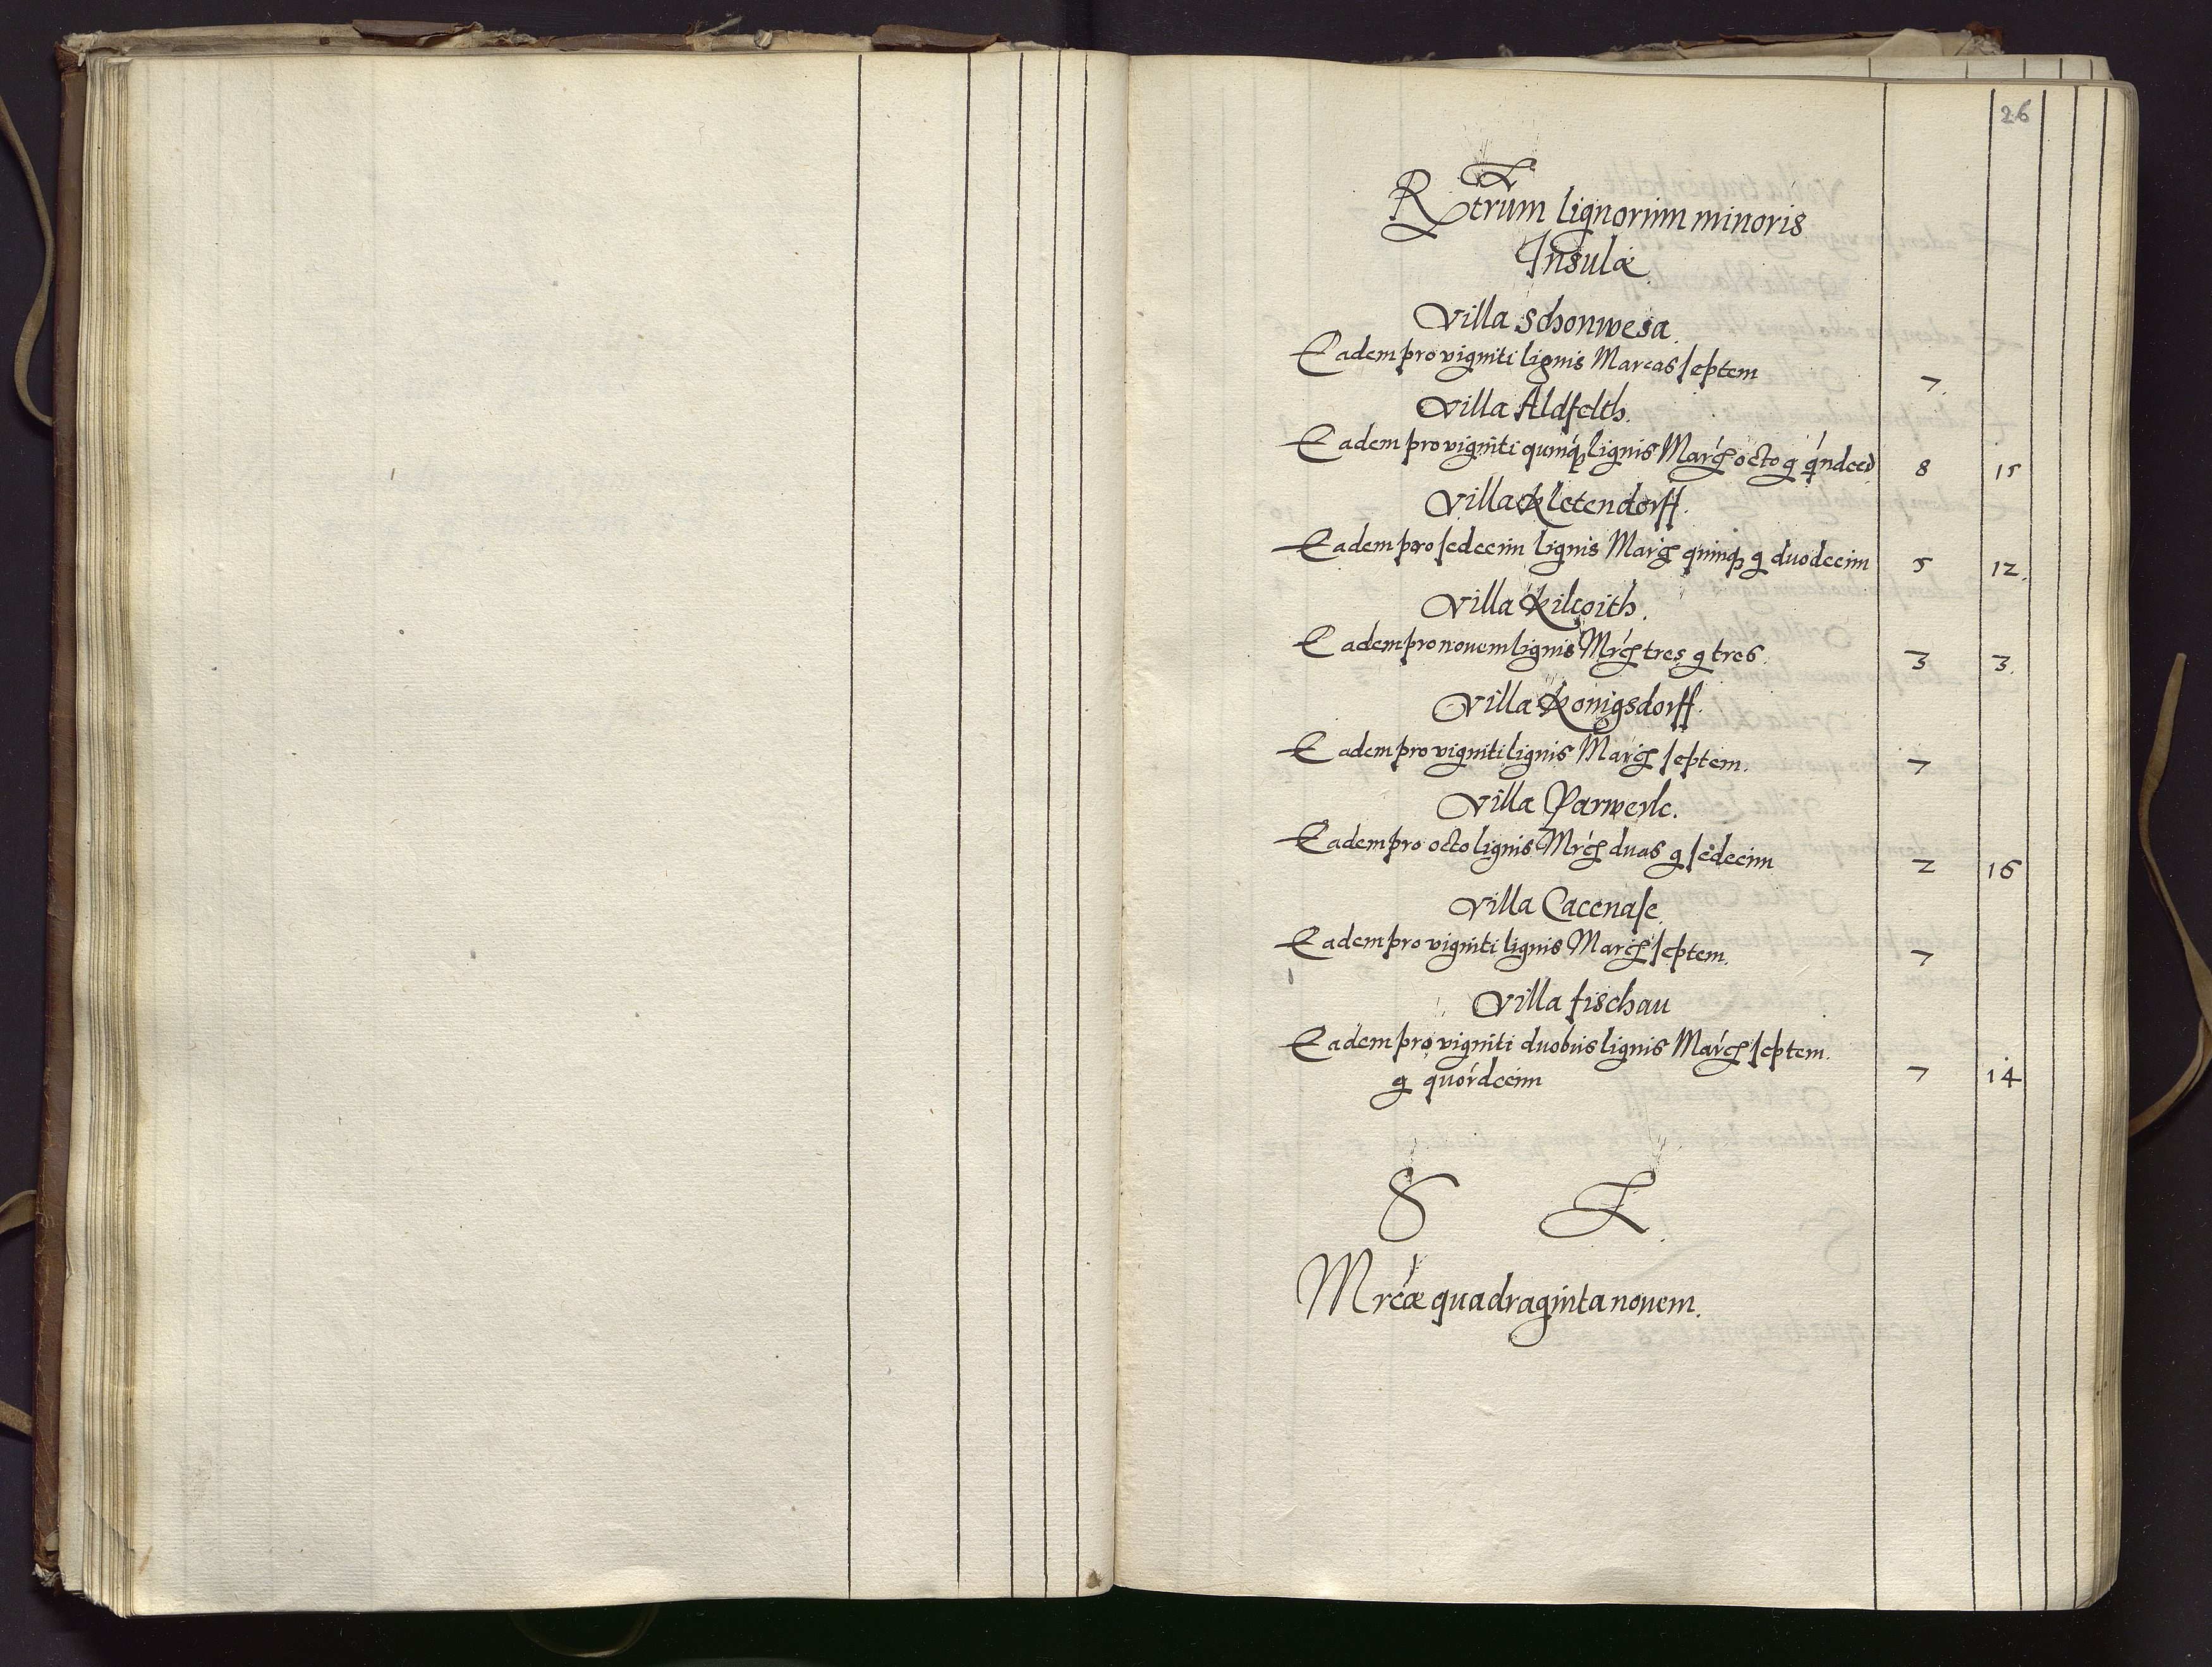 26
Rtrum lignorum minoris
Insulæ
Villa Schonwesa.
Eadem pro viginti lignis Marcas septem 7.
Villa Aldfelth.
Eadem pro viginti quinq lignis Marc octo g qundeci 8 15
Villa Kletendorff.
Eadem pro sedecim lignis Marc quinq g duodecim 5 12.
Villa Kilcoith.
Eadem pro nouem lignis Mrc tres g tres. 3 3.
Villa Konigsdorff.
Eadem pro viginti lignis Marc septem. 7
Villa Parwerle.
Eadem pro octo lignis Mrc duas g sedecim 2 16
Villa Caccnase.
Eadem pro viginti lignis Marc septem. 7
Villa fischau
Eadem pro viginti duobus lignis Marc septem.
g quordecim 7 14
S
Mrcæ quadraginta nouem.